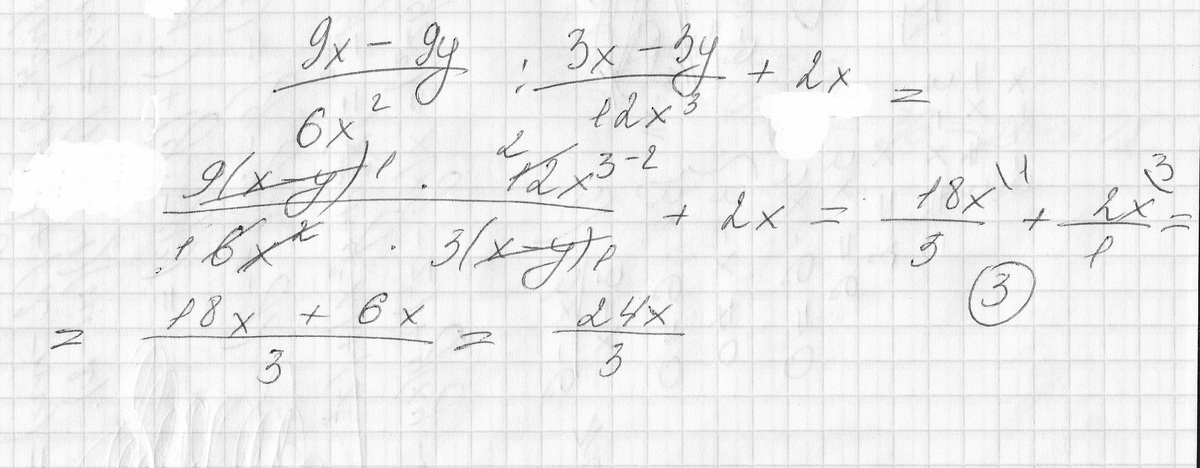 (9x - 9y)/(6x²) : (3x - 3y)/(12x³) + 2x =
(9(x-y)1 · ²12x³⁻²)/(16x² · 3(x-y)1) + 2x = 18x\1/3 + 2x\3/1 =
③
= (18x + 6x)/3 = 24x/3